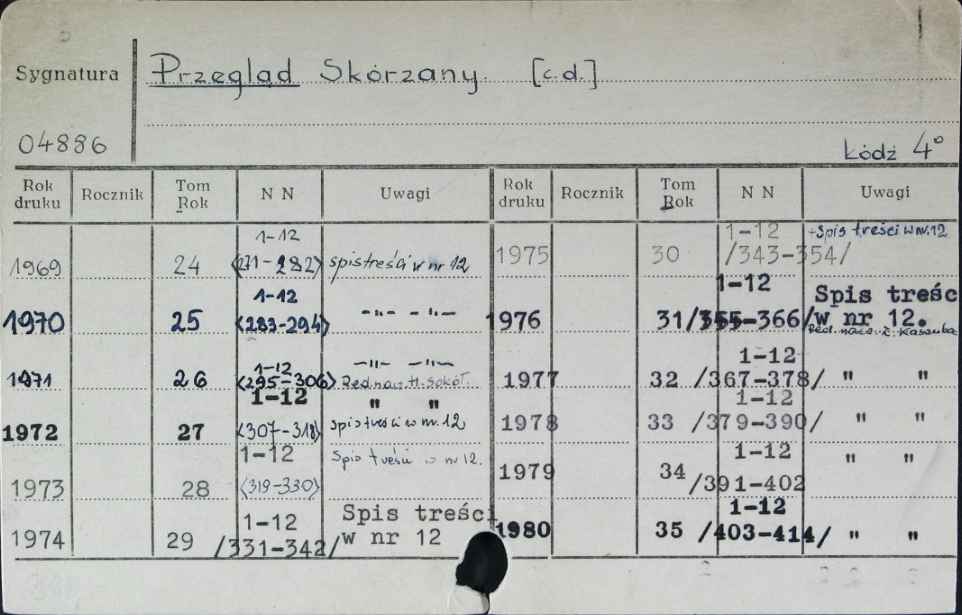 Sygnatura
Przegląd Skórzany. [c.d.]
04886
Łódź 4°
Rok druku Rocznik Tom Rok N N Uwagi
1969 24 1-12 <271-282> spis treści w nr 12
1970 25 1-12 <283-294> -"- -"-
1971 26 1-12 <295-306> -"- -"- Red. nacz. H. Sokół.
1972 27 1-12 <307-318> " " spis treści w nr. 12
1973 28 1-12 <319-330> Spis treści w nr 12.
1974 29 1-12 /331-342/ Spis treści w nr 12
Rok druku Rocznik Tom Rok N N Uwagi
1975 30 1-12 /343-354/ +Spis treści w nr. 12
1976 31 1-12 /355-366/ Spis treśc w nr 12. Red. nacz.
1977 32 1-12 /367-378/ " "
1978 33 1-12 /379-390/ " "
1979 34 1-12 /391-402 " "
1980 35 1-12 /403-414/ " "